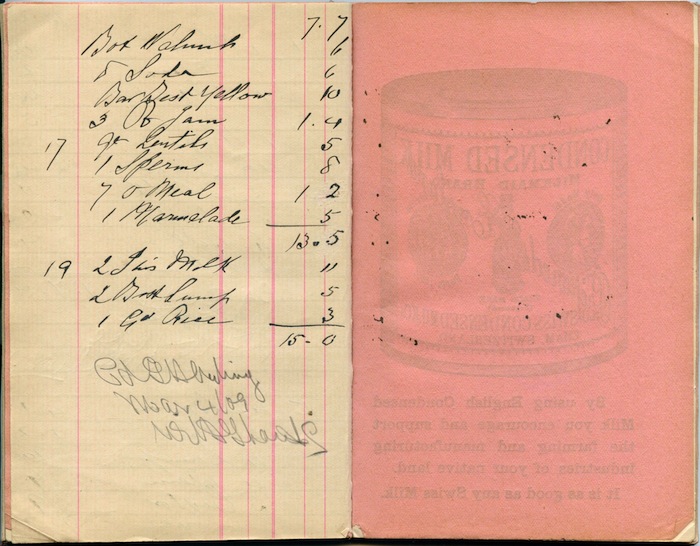 7. 7
Bot Walnuts 6
5 Soda 6
Bar Best Yellow 10
3 lb Jam 1. 4
17 qt Lentils 5
1 Sperms 8
7 O Meal 1 2
1 Marmelade 5
13. 5
19 2 Tins Milk 11
2 Bott Lump 5
1 Gd Rice 3
15- 0
CONDENSED MILK
MILKMAID BRAND
By using English Condensed
Milk you encourage and support
the farming and manufacturing
Industries of your native land.
It is as good as any Swiss Milk.